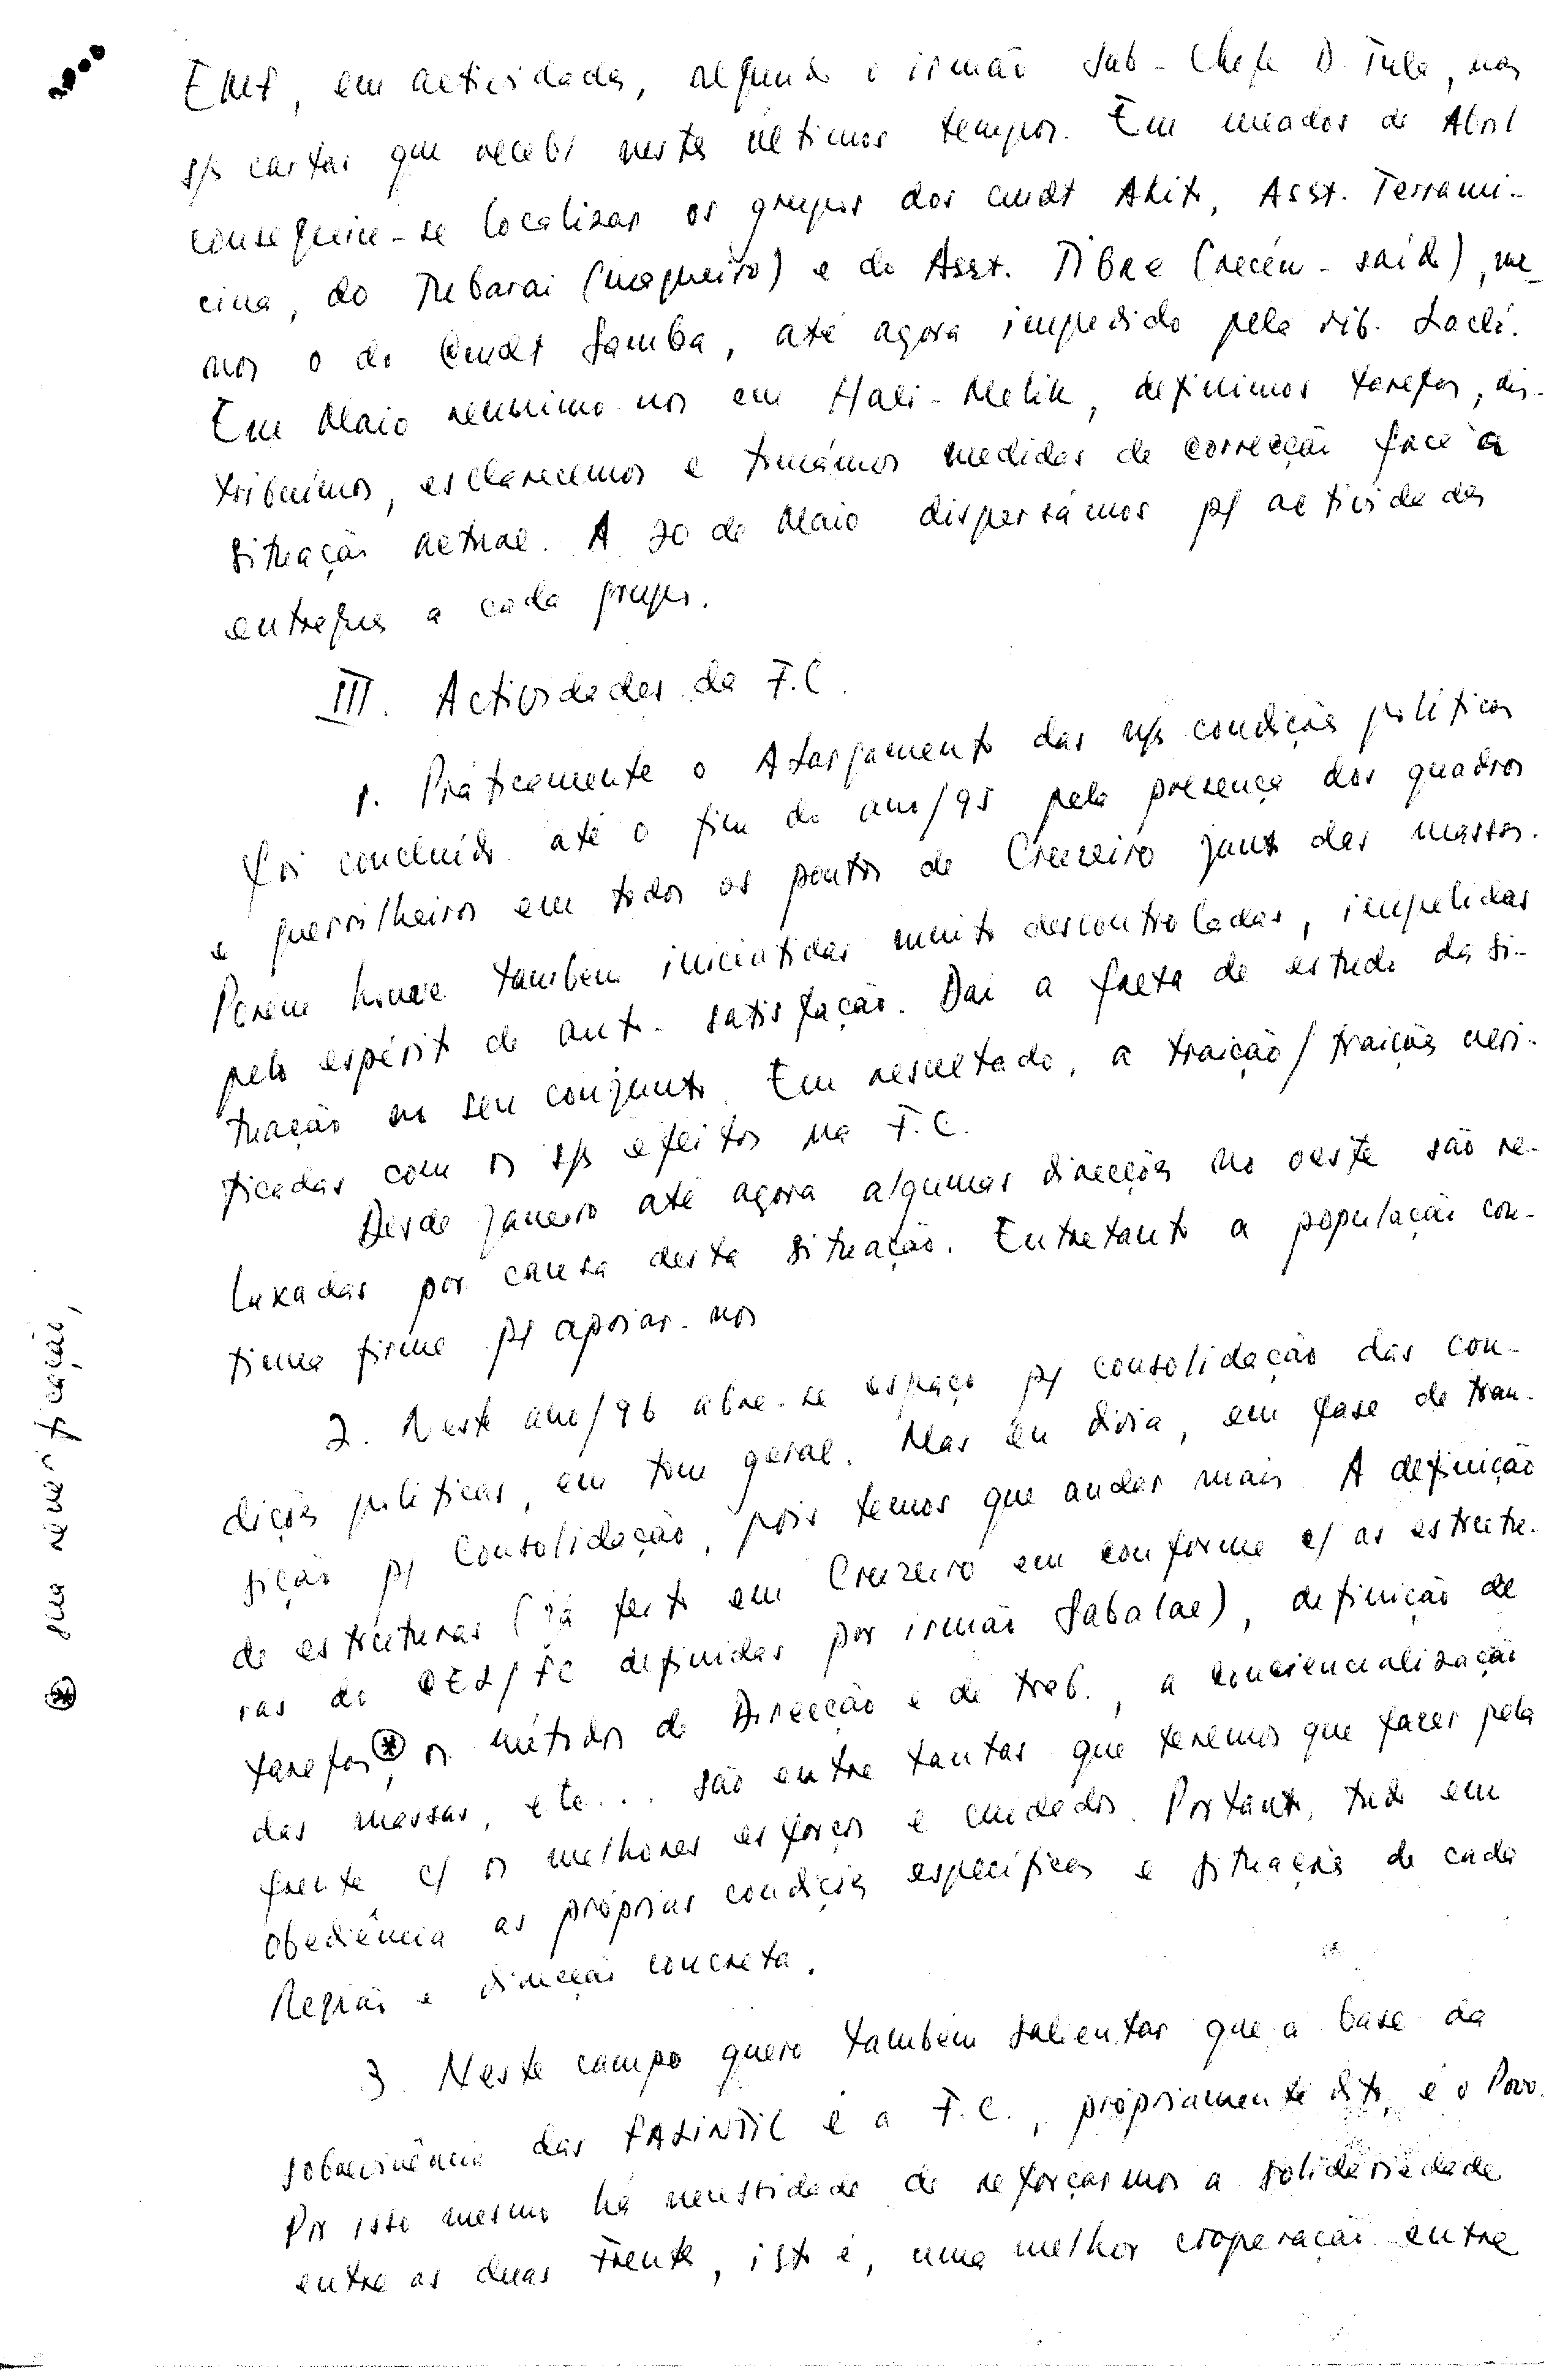 EMF, em actividades, segundo o irmão Sub-Chefe D. Tula, nas
s/s cartas que recebi nestes últimos tempos. Em meados de Abril
conseguiu-se localizar os grupos dos cmdt Akito, Asst. Terrami-
cina, do Tubarai (maqueiro) e do Asst. Tibre (recém-saído), me-
nos o do Cmdt Samba, até agora impedido pela rib. Lacló.
Em Maio reunimo-nos em Hali-Melik, definimos tarefas, dis-
tribuimos, esclarecemos e tomámos medidas de correcção face a
situação actual. A 20 de Maio dispersámos p/ actividades
entregues a cada grupo.
III. Actividades da F.C.
1. Práticamente o Alargamento das n/s condições políticas
foi concluído até o fim do ano/95 pela presença dos quadros
e guerrilheiros em todos os pontos de Cruzeiro junto das massas.
Porém houve também iniciativas muito descontroladas, impelidas
pelo espírito de auto-satisfação. Daí a falta de estudo da si-
tuação no seu conjunto. Em resultado, a traição/traições veri-
ficadas com os s/s efeitos na F.C.
Desde Janeiro até agora algumas direcções no oeste são re-
laxadas por causa desta situação. Entretanto a população con-
tinua firme p/ apoiar-nos
2. Neste ano/96 abre-se espaço p/ consolidação das con-
dições políticas, em tom geral. Mas eu diria, em fase de tran-
sição p/ Consolidação, pois temos que andar mais. A definição
de estruturas (já feito em Cruzeiro em conforme c/ as estrutu-
ras do OES/FC definidas por irmão Sabalae), definição de
tarefas ⊛, os métodos de Direcção e de trab., a consciencialização
das massas, etc... são entre tantas que teremos que fazer pela
frente c/ os melhores esforços e cuidados. Portanto, tudo em
obediência as próprias condições específicas e situações de cada
Região e direcção concreta.
3. Neste campo quero também salientar que a base da
sobrevivência das FALINTIL é a F.C., própriamente dito, é o Povo.
Por isso mesmo há necessidade de reforçarmos a solidariedade
entre as duas Frente, isto é, uma melhor cooperação entre
⊛ sua reverificação,